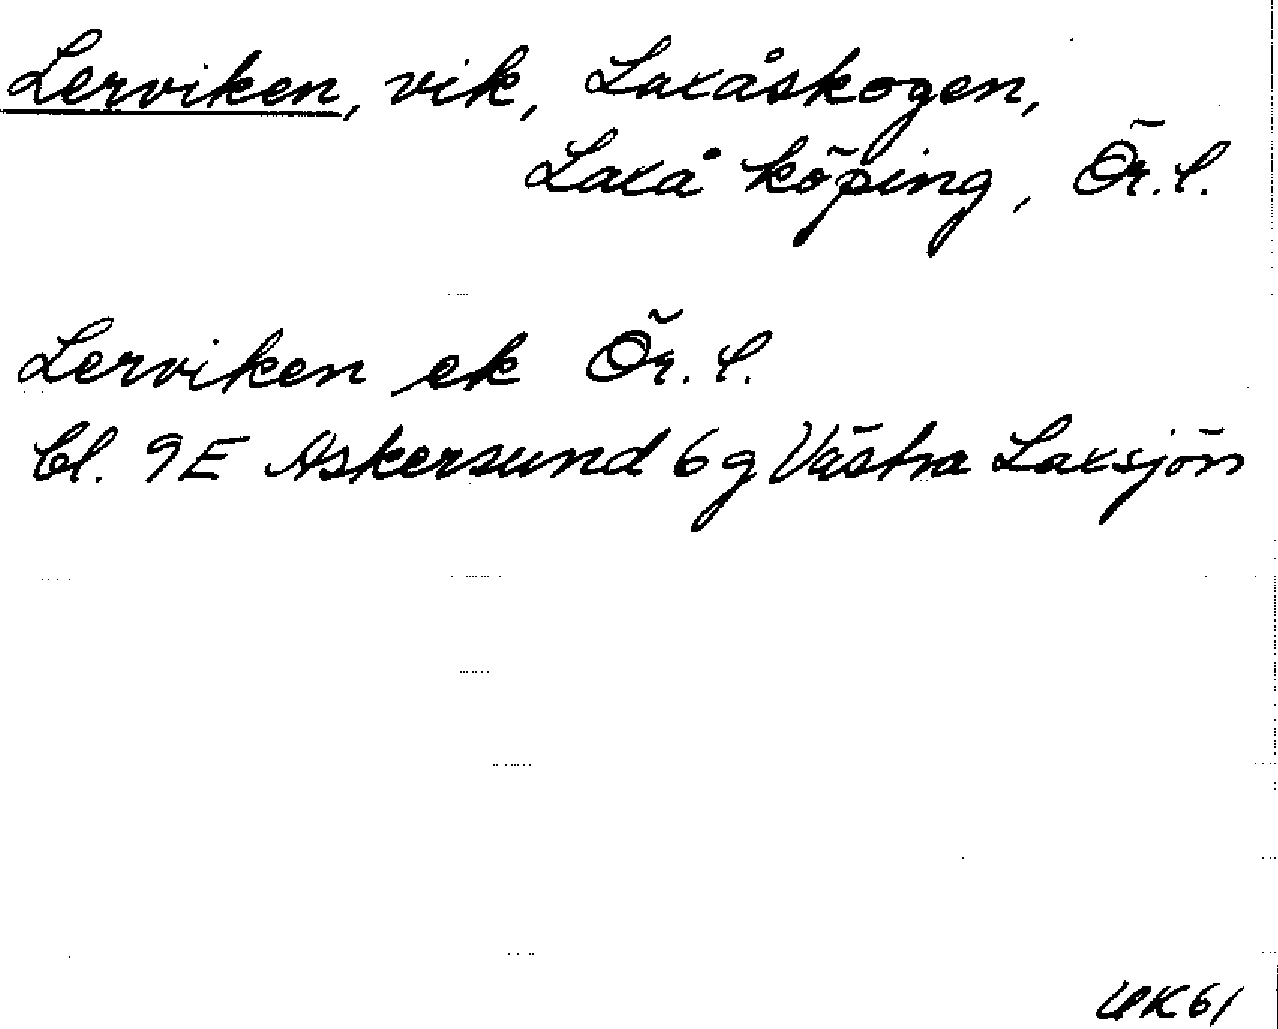 Lerviken, vik, Laxåskogen,
Laxå köping, Ör. l.
Lerviken ek Ör. l.
Bl. 9E Askersund 6 g Västra Laxsjön